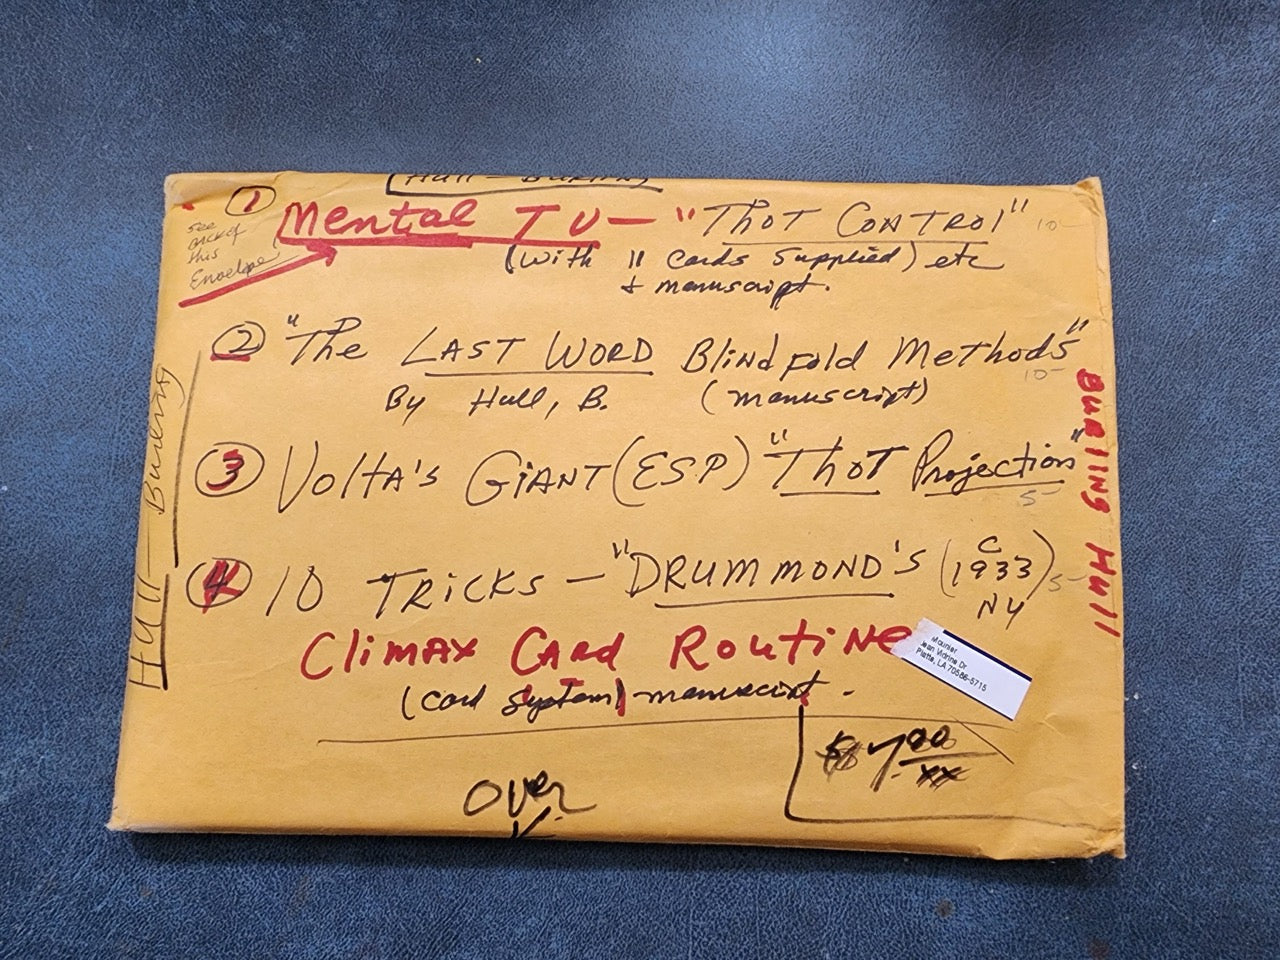 Hull - Burling
1 Mental TV - "Thot Control" 10-
see back of this Envelope
(with 11 Cards Supplied) etc
+ manuscript.
2 "The LAST WORD Blindfold Methods" 10-
By Hull, B. (manuscript)
3 Volta's GIANT (ESP) "Thot Projection" 5-
4 10 TRICKS - "DRUMMOND'S (C 1933 NY) 5-
Climax Card Routine
(card system) manuscript.
Mounier
Jean Vidrine Dr
Platte, LA 70586-5715
$ 7.00/xx
Over
Hull - Burling
Burling Hull